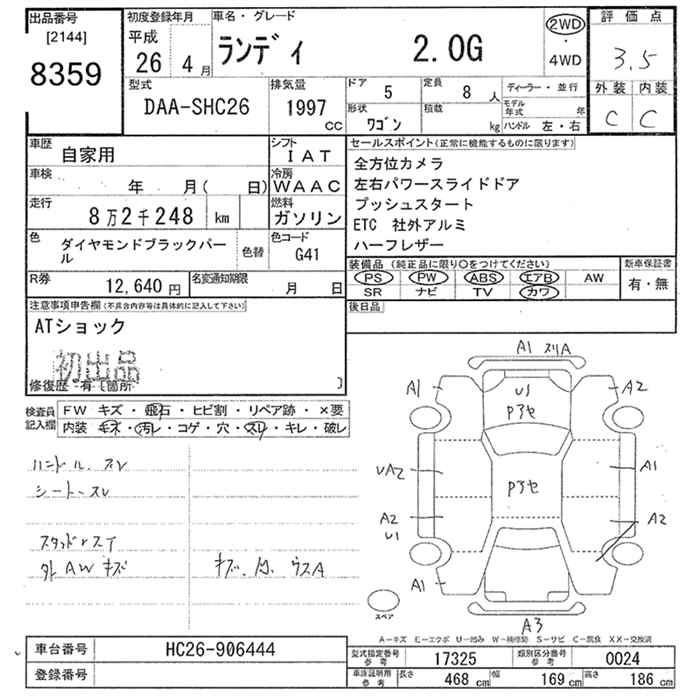 出品番号
[2144]
8359
初度登録年月
平成
26 4 月
車名・グレード
ランディ 2.0G
2WD
・
4WD
評価点
3.5
外装 内装
C C
型式
DAA-SHC26
排気量
1997
CC
ドア
5
定員
8 人
ディーラー・並行
形状
ワゴン
積載
kg
モデル年式 年
ハンドル 左・右
車歴
自家用
シフト
IAT
車検
年 月( 日)
冷房
WAAC
走行
8万2千248 km
燃料
ガソリン
色
ダイヤモンドブラックパール
色替
色コード
G41
R券
12,640 円
名変通知期限
月 日
セールスポイント(正常に機能するものに限ります)
全方位カメラ
左右パワースライドドア
プッシュスタート
ETC 社外アルミ
ハーフレザー
装備品 (純正品に限り○をつけてください)
PS PW ABS エアB AW
SR ナビ TV カワ
新車保証書
有・無
後日品
注意事項申告欄(不具合内容等は具体的に記入して下さい)
ATショック
初出品
修復歴 有 [箇所 ]
検査員記入欄
FW キズ・飛石・ヒビ割・リペア跡・×要
内装 キズ・汚レ・コゲ・穴・スレ・キレ・破レ
ハンドル.スレ
シート.スレ
スタッドレスT
外AWキズ
A1 スリA
A1
A2
U1
Pアセ
UA2
A1
Pアセ
A2
U1
A2
A1
スペア
A3
A-キズ E-エクボ U-凹み W-補修跡 S-サビ C-腐食 XX-交換済
車台番号
HC26-906444
登録番号
型式指定番号 参考
17325
類別区分番号 参考
0024
車庫証明用 参考
長さ 468 cm
幅 169 cm
高さ 186 cm